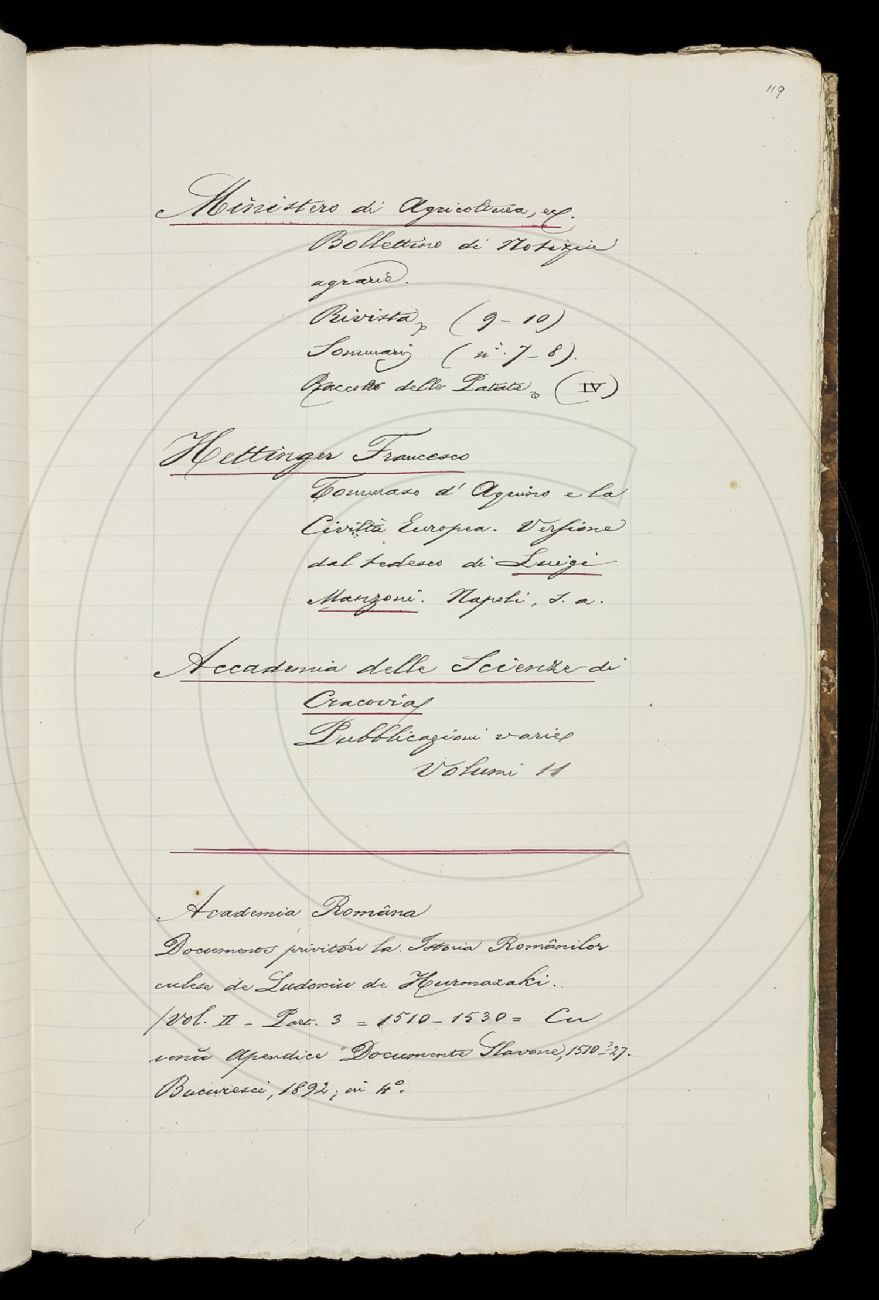 119
Ministero di Agricoltura, ec.
Bollettino di Notizie
agrarie.
Rivista (9-10)
Sommarj (n.i 7-8).
Raccolto delle Patate (IV)
Hettinger Francesco
Tommaso d'Aquino e la
Civiltà Europea. Versione
dal tedesco di Luigi
Manzoni. Napoli, s. a.
Accademia delle Scienze di
Cracovia
Pubblicazioni varie
Volumi 11
Academia Româna
Documente privitóre la Istoria Românilor
culese de Eudoxiu de Hurmuzaki.
/Vol. II - Part. 3 = 1510-1530 = Cu
unŭ Apendice Documente Slavone, 1510-27.
Bucuresci, 1892, in 4°.